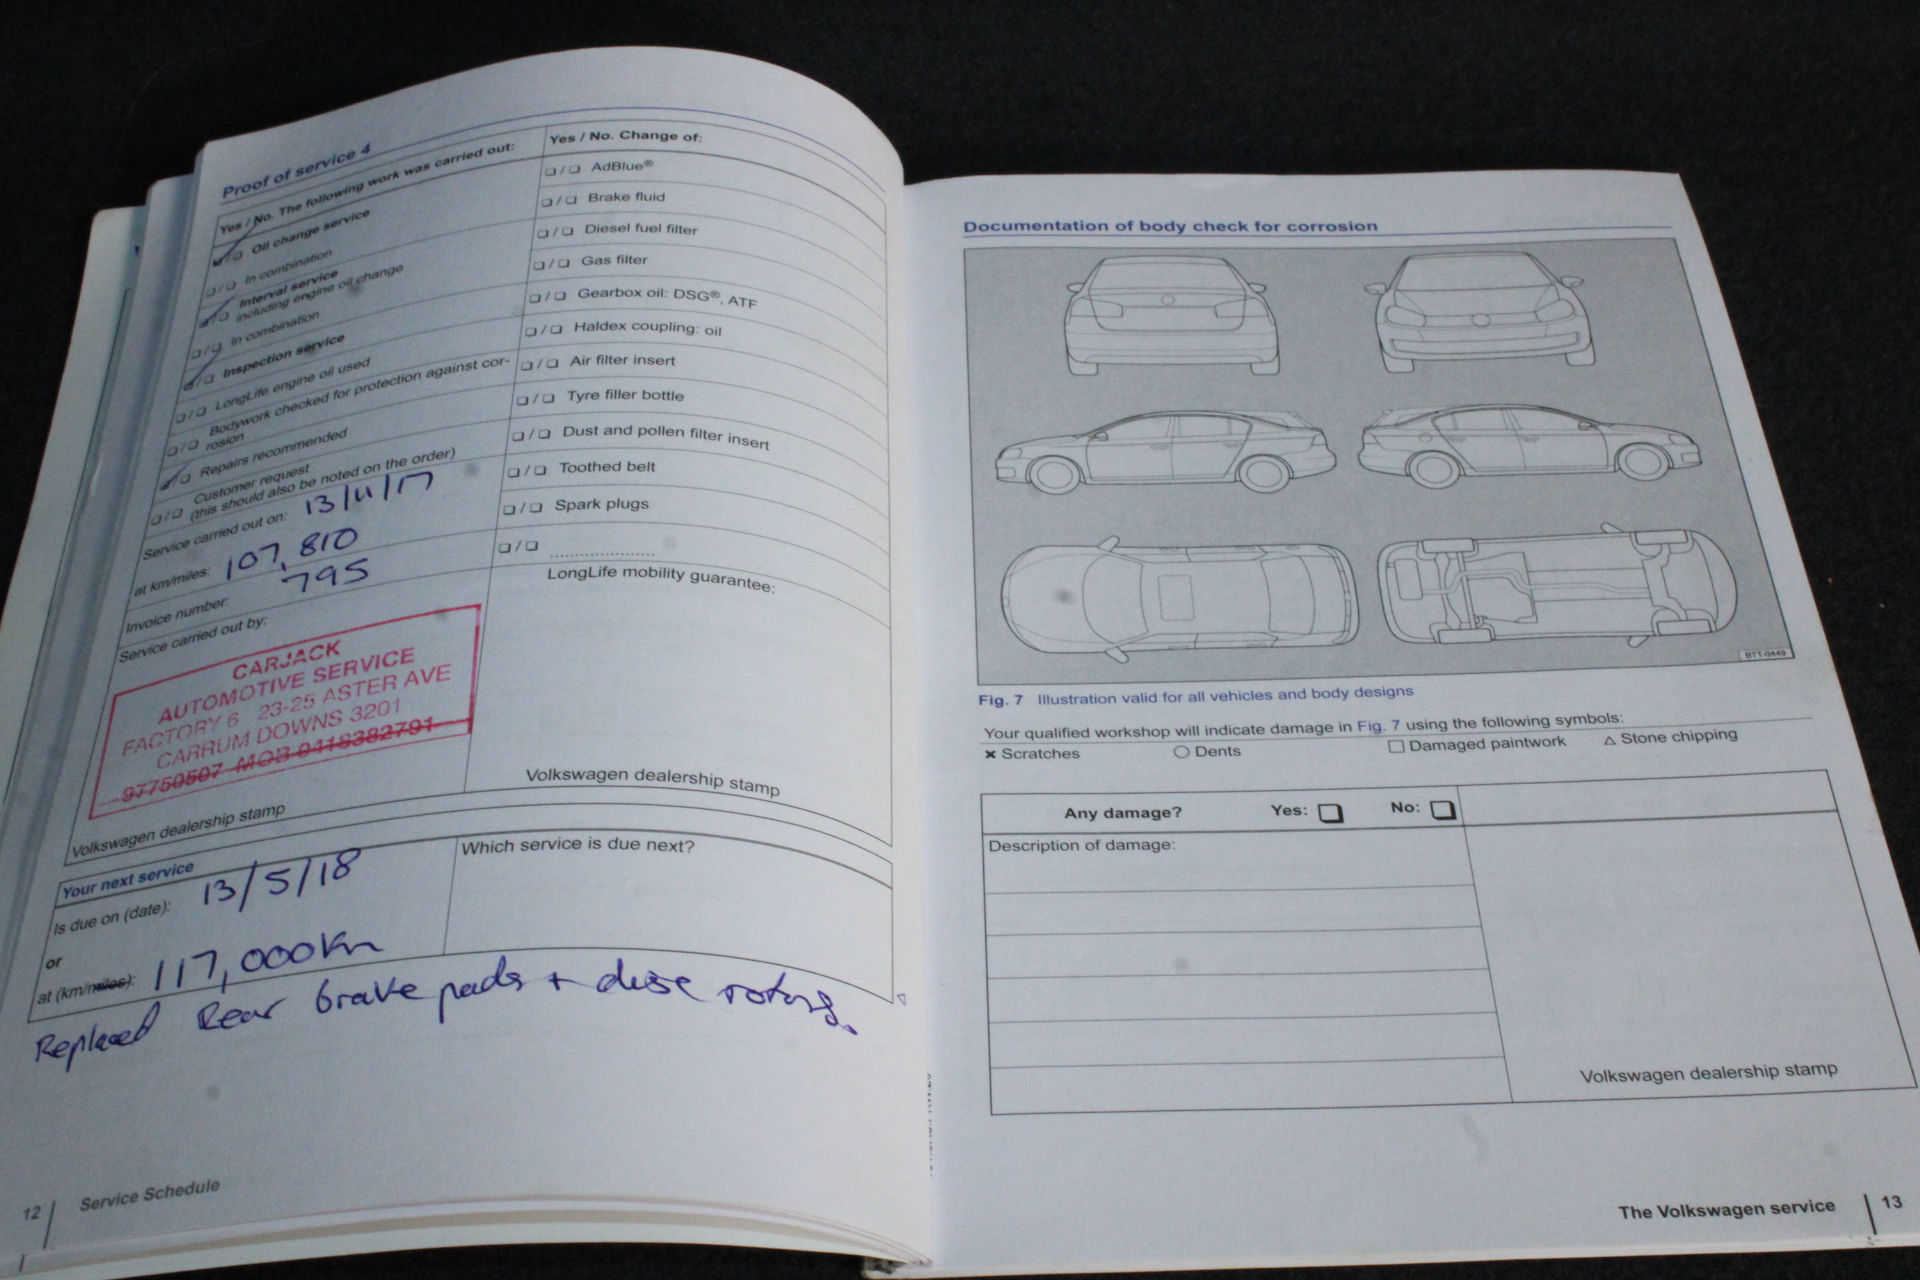 Proof of service 4
Yes / No. The following work was carried out:
❏ / ❏ Oil change service
❏ / ❏ In combination
❏ / ❏ Interval service
including engine oil change
❏ / ❏ In combination
❏ / ❏ Inspection service
❏ / ❏ LongLife engine oil used
❏ / ❏ Bodywork checked for protection against cor-
rosion
❏ / ❏ Repairs recommended
❏ / ❏ Customer request
(this should also be noted on the order)
Service carried out on: 13/11/17
at km/miles: 107,810
Invoice number: 795
Service carried out by:
CARJACK
AUTOMOTIVE SERVICE
FACTORY 6 23-25 ASTER AVE
CARRUM DOWNS 3201
97750507 MOB 0418382791
Volkswagen dealership stamp
Yes / No. Change of:
❏ / ❏ AdBlue®
❏ / ❏ Brake fluid
❏ / ❏ Diesel fuel filter
❏ / ❏ Gas filter
❏ / ❏ Gearbox oil: DSG®, ATF
❏ / ❏ Haldex coupling: oil
❏ / ❏ Air filter insert
❏ / ❏ Tyre filler bottle
❏ / ❏ Dust and pollen filter insert
❏ / ❏ Toothed belt
❏ / ❏ Spark plugs
❏ / ❏ ....................
LongLife mobility guarantee:
Volkswagen dealership stamp
Your next service
Is due on (date): 13/5/18
or
at (km/miles): 117,000km
Which service is due next?
Replaced Rear brake pads + disc rotors.
12 Service Schedule
Documentation of body check for corrosion
BTT-0449
Fig. 7 Illustration valid for all vehicles and body designs
Your qualified workshop will indicate damage in Fig. 7 using the following symbols:
× Scratches ○ Dents □ Damaged paintwork △ Stone chipping
Any damage? Yes: ❏ No: ❏
Description of damage:
Volkswagen dealership stamp
The Volkswagen service 13